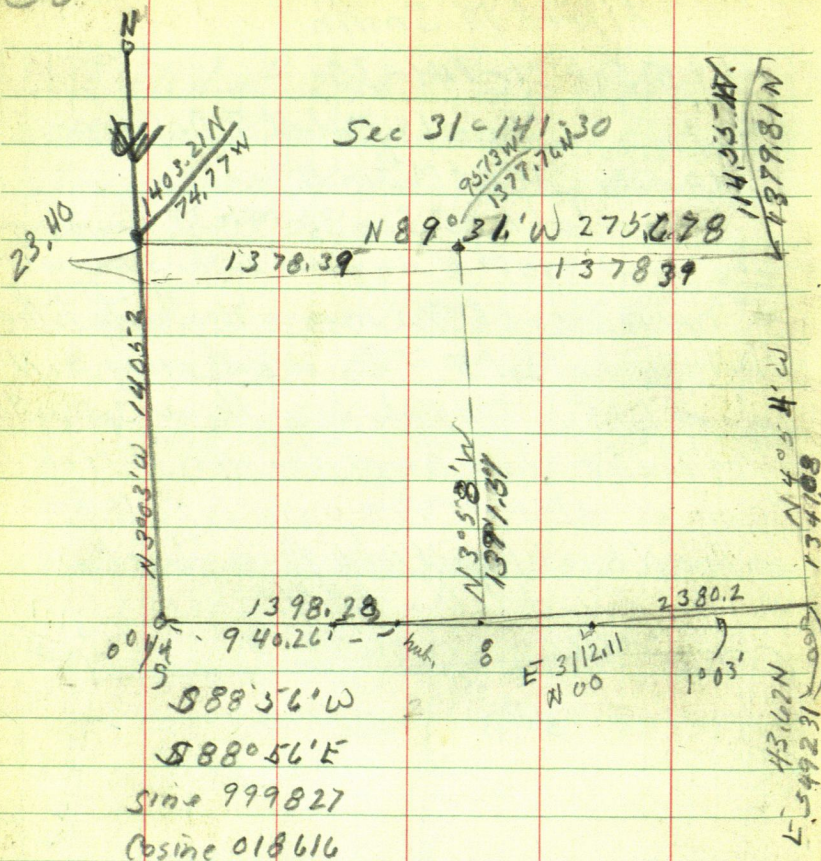 N
Sec 31-141-30
1403.21 N
74.77 W
95.73 W
1377.76 N
114.55 W.
1379.81 N
23.40
N 89° 31.' W 2756.78
1378.39
137839
N 3°03' W 1405.2
N 3°58' W
1381.37
N 4°54' W
1341.88
1398.28
940.26
2380.2
0° 1/4
S
E 3112.11
N 00
1°03'
43.62 N
E. 5492.31
S 88°56' W
S 88°56' E
sine 999827
Cosine 018616